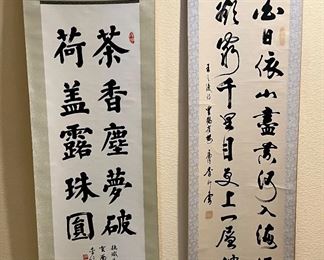 茶香塵夢破
荷盖露珠圓
白日依山盡黃河入海流
欲窮千里目更上一層樓
王之渙詩